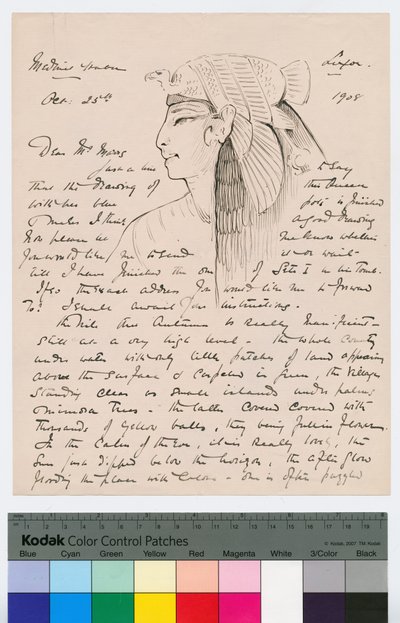 Medinet Habu
Luxor.
Oct: 25th 1908
Dear Mr Moss
Just a line to say
that the drawing of this Queen
with her blue is finished
makes I think a good drawing
Now please let me know whether
you would like me to send it or wait
till I have finished the one of Seti I in his Tomb.
If so the exact address you would like me to forward
to? I shall await your instructions.
The Nile this Autumn is really magnificent—
still at a very high level— the whole country
under water with only little patches of land appearing
above the surface & carpeted in green, the villages
standing clear as small islands under palms
mimosa trees— the latter covered with
thousands of yellow balls, they being in flower.
In the calm of the eve, it is really lovely, the
sun just dipped below the horizon, the afterglow
flooding the place with colors— one is often puzzled
Kodak Color Control Patches
© Kodak, 2007 TM: Kodak
Blue Cyan Green Yellow Red Magenta White 3/Color Black